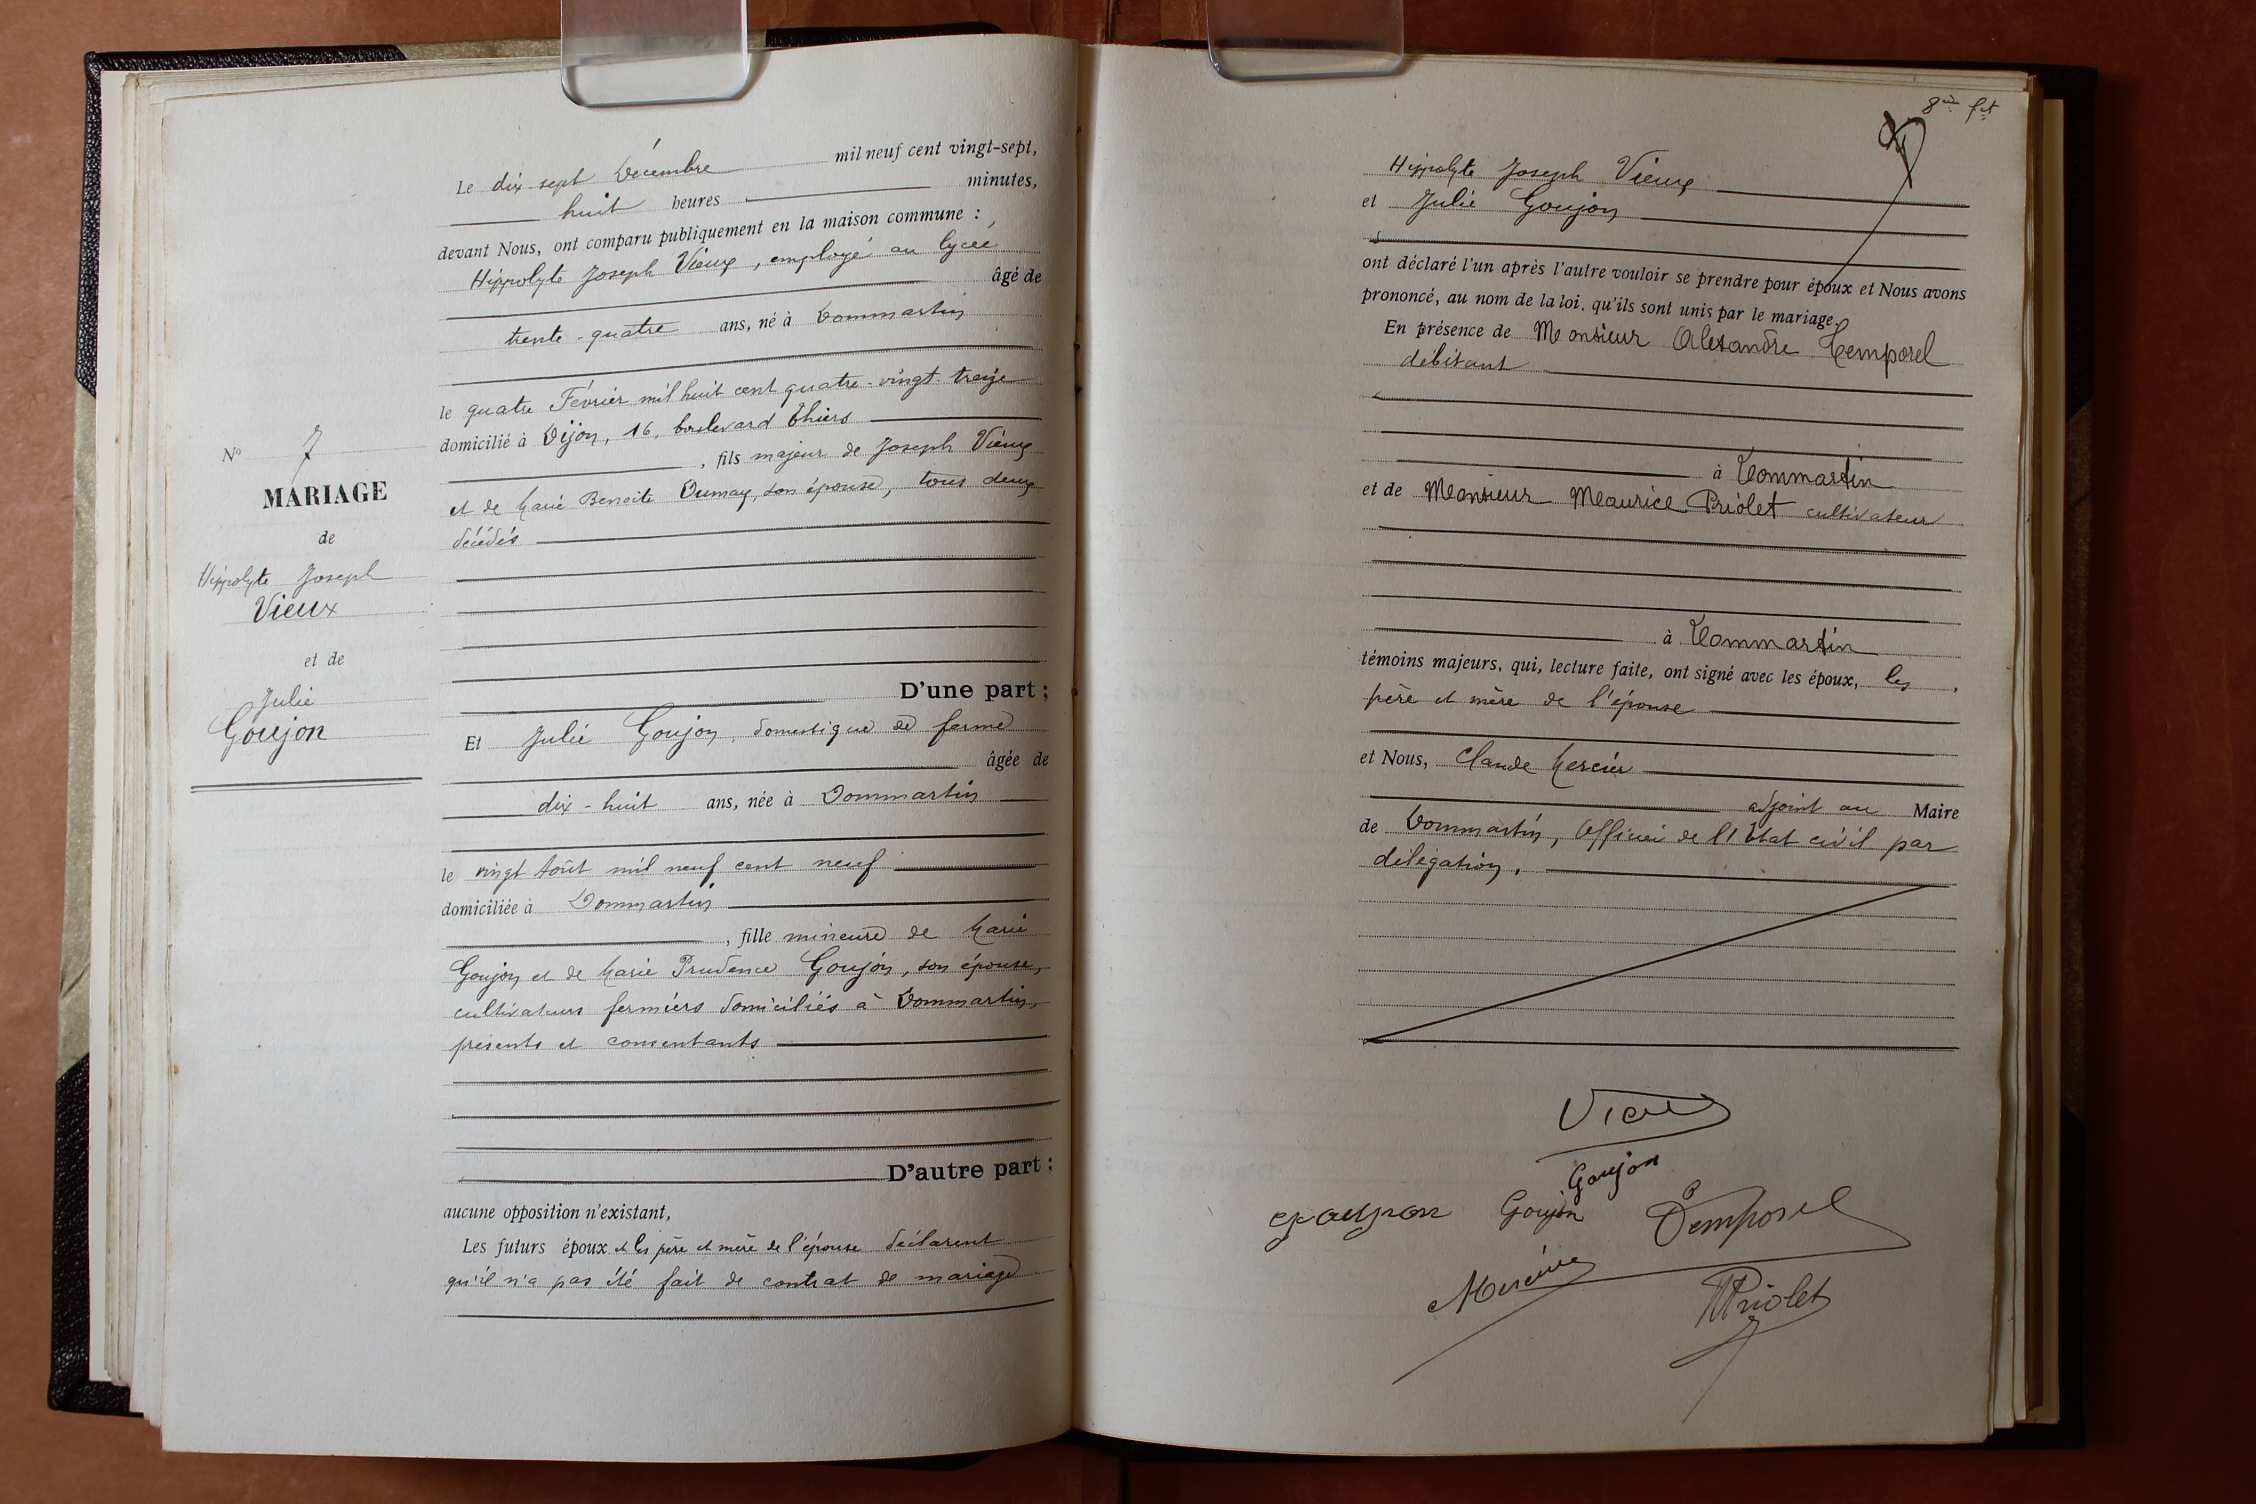 N° 7
MARIAGE
de
Hippolyte Joseph
Vieux
et de
Julie
Goujon
Le dix-sept Décembre mil neuf cent vingt-sept,
huit heures minutes,
devant Nous, ont comparu publiquement en la maison commune :
Hippolyte Joseph Vieux, employé au lycée
âgé de
trente-quatre ans, né à Dommartin
le quatre Février mil huit cent quatre-vingt treize
domicilié à Dijon, 16, boulevard Thiers
, fils majeur de Joseph Vieux
et de Marie Benoite Dumay, son épouse, tous deux
décédés
D'une part ;
Et Julie Goujon, domestique de ferme
âgée de
dix-huit ans, née à Dommartin
le vingt Août mil neuf cent neuf
domiciliée à Dommartin
, fille mineure de Marie
Goujon et de Marie Prudence Goujon, son épouse,
cultivateurs fermiers domiciliés à Dommartin,
présents et consentants
D'autre part ;
aucune opposition n'existant,
Les futurs époux et les père et mère de l'épouse déclarent
qu'il n'a pas été fait de contrat de mariage
8ème fet
Hippolyte Joseph Vieux
et Julie Goujon
ont déclaré l'un après l'autre vouloir se prendre pour époux et Nous avons
prononcé, au nom de la loi, qu'ils sont unis par le mariage.
En présence de Monsieur Alexandre Temporel
débitant
à Dommartin
et de Monsieur Maurice Priolet cultivateur
à Dommartin
témoins majeurs, qui, lecture faite, ont signé avec les époux, les
père et mère de l'épouse
et Nous, Claude Mercier
adjoint au Maire
de Dommartin, Officier de l'Etat civil par
délégation.
Vieux
Goujon
goujon Goujon Temporel
Mercier
MPriolet